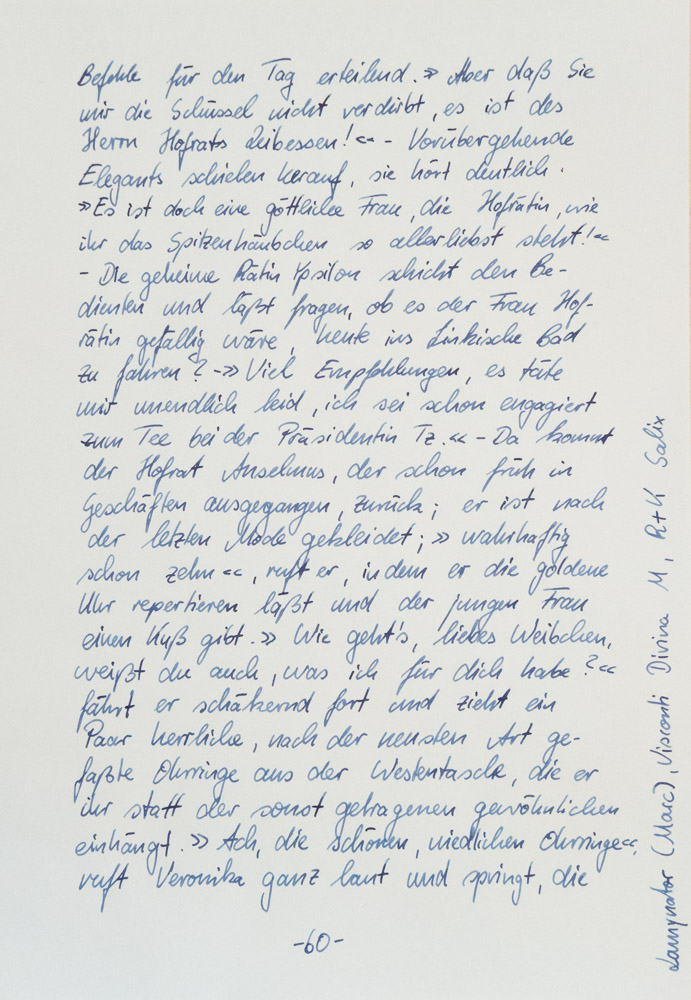 Befehle für den Tag erteilend. » Aber daß Sie
mir die Schüssel nicht verdirbt, es ist des
Herrn Hofrats Leibessen! « - Vorübergehende
Elegants schielen herauf, sie hört deutlich.
» Es ist doch eine göttliche Frau, die Hofrätin, wie
ihr das Spitzenhäubchen so allerliebst steht! «
- Die geheime Rätin Ypsilon schickt den Be-
dienten und läßt fragen, ob es der Frau Hof-
rätin gefällig wäre, heute ins Linkische Bad
zu fahren? - » Viel Empfehlungen, es täte
mir unendlich leid, ich sei schon engagiert
zum Tee bei der Präsidentin Tz. « - Da kommt
der Hofrat Anselmus, der schon früh in
Geschäften ausgegangen, zurück; er ist nach
der letzten Mode gekleidet; » wahrhaftig
schon zehn «, ruft er, indem er die goldene
Uhr repertieren läßt und der jungen Frau
einen Kuß gibt. » Wie geht's, liebes Weibchen,
weißt du auch, was ich für dich habe? «
fährt er schäkernd fort und zieht ein
Paar herrliche, nach der neusten Art ge-
faßte Ohrringe aus der Westentasche, die er
ihr statt der sonst getragenen gewöhnlichen
einhängt. » Ach, die schönen, niedlichen Ohrringe «,
ruft Veronika ganz laut und springt, die
-60-
Lamynator (Marc), Visconti Divina M, R+K Salix